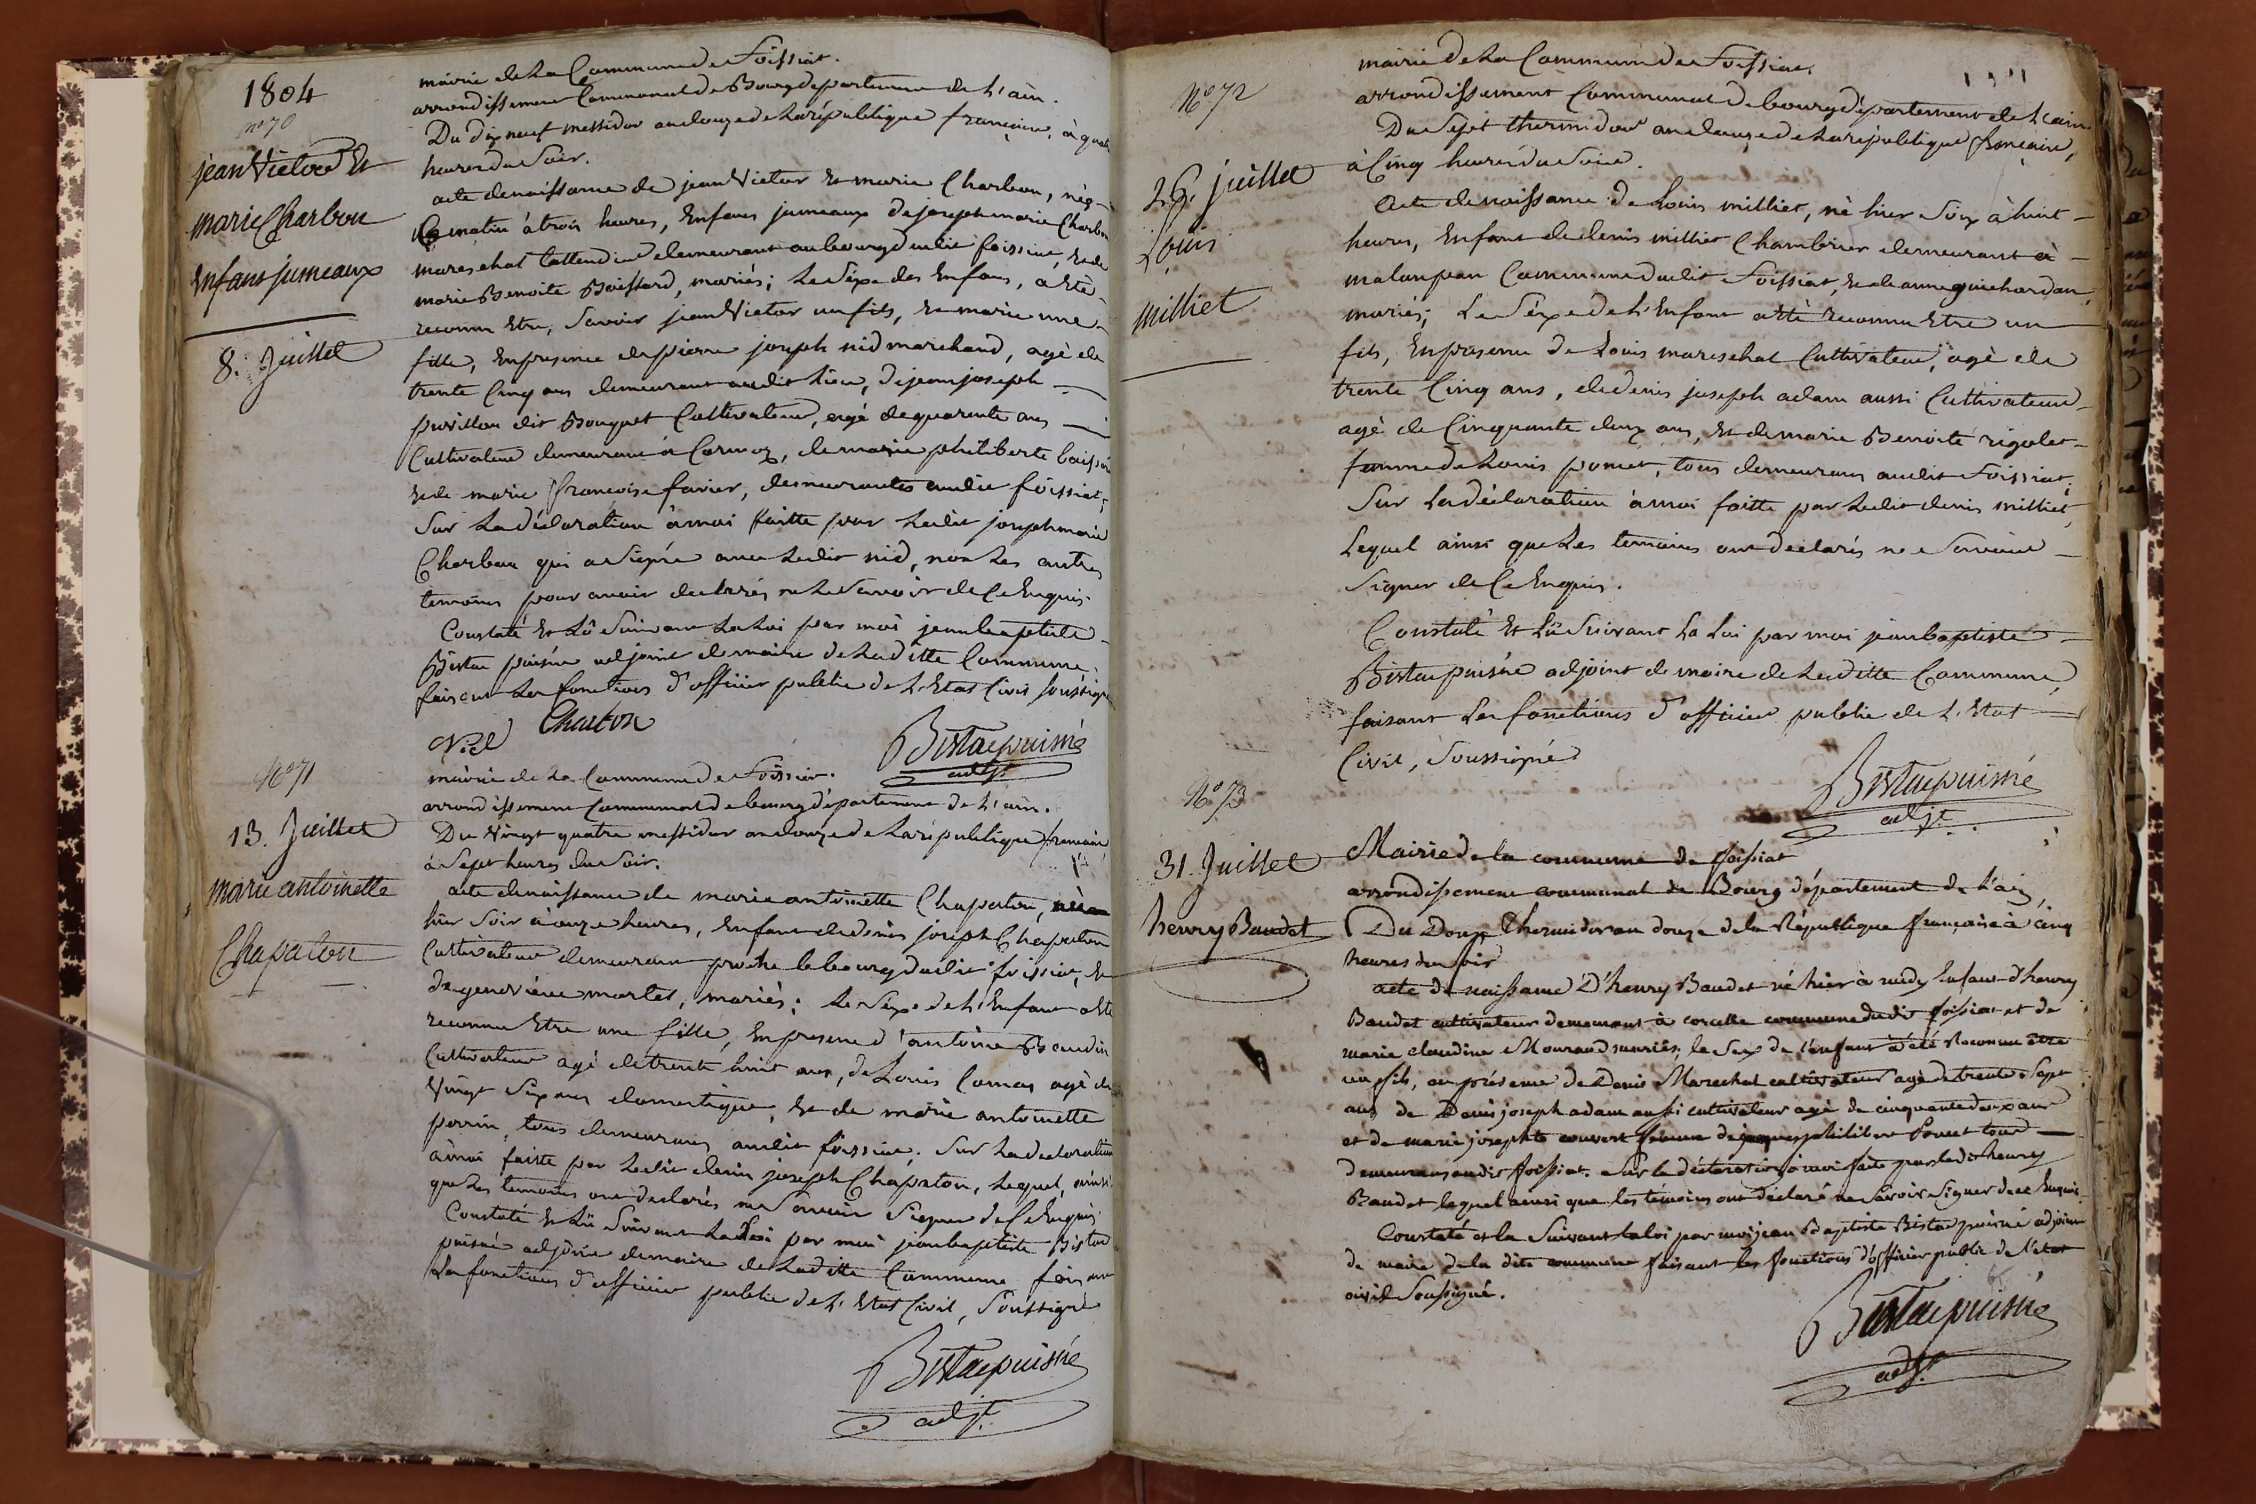 1804
mairie de La Commune de Foissiat.
arrondissement Communal de Bourg departement de L'ain.
n° 70
Du dix neuf messidor an douze de La république francaise, à quatre
heures du Soir.
jean Victor Et
marie Charbon
Enfans jumeaux
8. Juillet
acte de naissance de jean Victor Et marie Charbon, nés
Ce matin à trois heures, Enfans jumeaux de joseph marie Charbon
mareschal tattendier demeurant au bourg dudit foissiat, Et de
marie Benoite Boissard, mariés; Le Sexe des Enfans, a Eté
reconnu Etre, Savoir jean Victor un fils, Et marie une
fille, En presence de pierre joseph nid marchand, agé de
trente Cinq ans demeurant audit Lieu, de jean joseph
puvillon dit Bouquet Cultivateur, agé de quarente ans
Cultivateur demeurant à Cormoz, de marie philiberte
Et de marie francoise favier, demeurantes audit foissiat,
Sur La déclaration à moi faitte par Ledit joseph marie
Charbon qui a Signé avec Ledit nid, non Les autres
temoins pour avoir declarés ne Le Savoir de Ce Enquis.
Constaté Et Lû Suivant La Loi par moi jean baptiste
Bistac puisné adjoint de maire de Laditte Commune,
faisant Les fonctions d'officier public de L'Etat Civil Soussigné
Nid Charbon
Bistac puisné
adjt.
N° 71
mairie de La Commune de Foissiat.
arrondissement Communal de bourg département de L'ain.
13. Juillet
Du Vingt quatre messidor an douze de La république francaise
à Sept heures du Soir.
marie antoinette
Chapaton
acte de naissance de marie antoinette Chapaton, née
hier Soir à onze heures, Enfant de denis joseph Chapaton
Cultivateur demeurant proche le bourg dudit foissiat, Et
de genevieve martet, mariés; Le Sexe de L'Enfant a Eté
reconnu Etre une fille, En presence d'antoine Beaudin
Cultivateur agé de trente huit ans, de Louis Comas agé de
Vingt Six ans domestique, Et de marie antoinette
perrin, tous demeurans audit foissiat. Sur La declaration
à moi faitte par Ledit denis joseph Chapaton, Lequel, ainsi
que Les temoins ont declarés ne Savoir Signer de Ce Enquis.
Constaté Et Lû Suivant La Loi par moi jean baptiste Bistac
puisné adjoint de maire de Laditte Commune faisant
Les fonctions d'officier public de L'Etat Civil, Soussigné
Bistac puisné
adjt.
N° 72
mairie de La Commune de Foissiat.
arrondissement Communal de bourg département de L'ain.
Du Sept thermidor an douze de La république francaise,
à Cinq heures du Soir.
26. juillet
Louis
milliet
Acte de naissance de Louis milliet, né hier Soir à huit
heures, Enfant de denis milliet Chambrier demeurant à
malaupan Commune dudit Foissiat, Et de anne guichardan,
mariés; Le Séxe de L'Enfant a été reconnu Etre un
fils, En presence de Louis mareschal Cultivateur, agé de
trente Cinq ans, de denis joseph adam aussi Cultivateur
agé de Cinquante deux ans, Et de marie Benoite rigolet
femme de Louis poncet, tous demeurans audit Foissiat.
Sur La déclaration à moi faitte par Ledit denis milliet,
Lequel ainsi que Les temoins ont declarés ne Savoir
Signer de Ce Enquis.
Constaté Et Lû Suivant La Loi par moi jean baptiste
Bistac puisné adjoint de maire de Laditte Commune,
faisant Les fonctions d'officier public de L'Etat
Civil, Soussigné
Bistac puisné
adjt.
N° 73
31. Juillet
henry Baudet
Mairie de la commune de foissiat
arrondissement communal de Bourg département de L'ain
Du Douze Thermidor an douze de la République française à cinq
heures du soir
acte de naissance D'henry Baudet né hier à midy Enfant d'henry
Baudet cultivateur demeurant à corcelle commune dudit foissiat et de
marie claudine Mourand mariés; le Sexe de l'enfant a été Reconnu être
un fils, en présence de Denis Marechal cultivateur agé de trente Sept
ans de Denis joseph adam aussi cultivateur agé de cinquante deux ans
et de marie josephte convert femme de jacques philibert Poncet tous
demeurans audit foissiat. Sur la déclaration à moi faite par ledit henry
Baudet lequel ainsi que les témoins ont déclaré ne Savoir Signer de ce Enquis.
Constaté et lu Suivant la loi par moi jean Baptiste Bistac puisné adjoint
de maire de la dite commune faisant les fonctions d'officier public de l'état
civil Soussigné.
Bistac puisné
adjt.